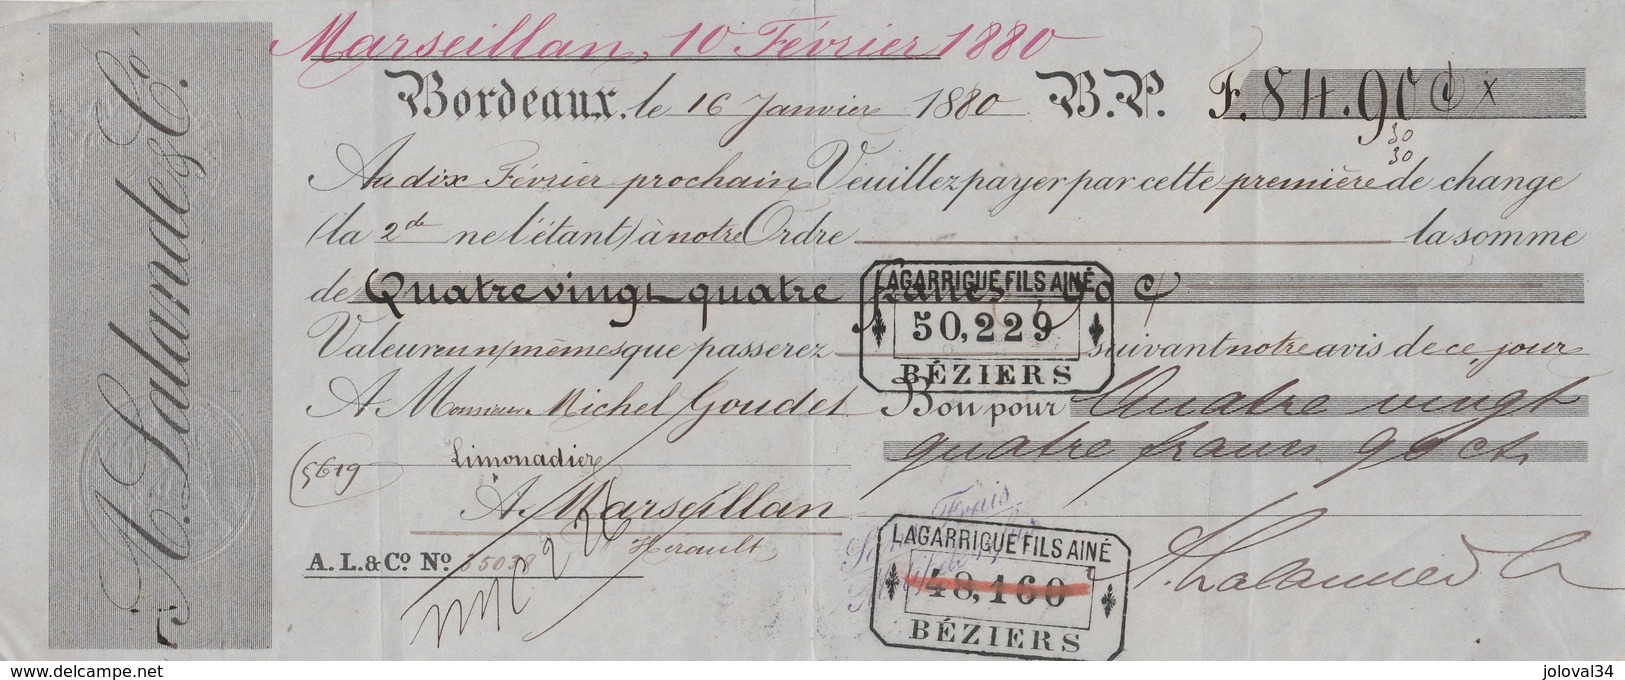 A. Lalande & Co.
Marseillan, 10 Février 1880
Bordeaux, le 16 Janvier 1880 B.P. F. 84.90 c x
30
30
Au dix Février prochain Veuillez payer par cette première de change
(la 2de ne l'étant) à notre Ordre la somme
de Quatre vingt quatre francs 90 c
LAGARRIGUE FILS AINÉ
50,229
BÉZIERS
Valeur en n/ mêmes que passerez suivant notre avis de ce jour
A Monsieur Michel Goudet Bon pour Quatre vingt
quatre francs 90 cts
5619
Limonadier
A Marseillan
Hérault
A. L. & Co. No. 35038
Frais
LAGARRIGUE FILS AINÉ
48,160
BÉZIERS
A. Lalande & Co
joloval34